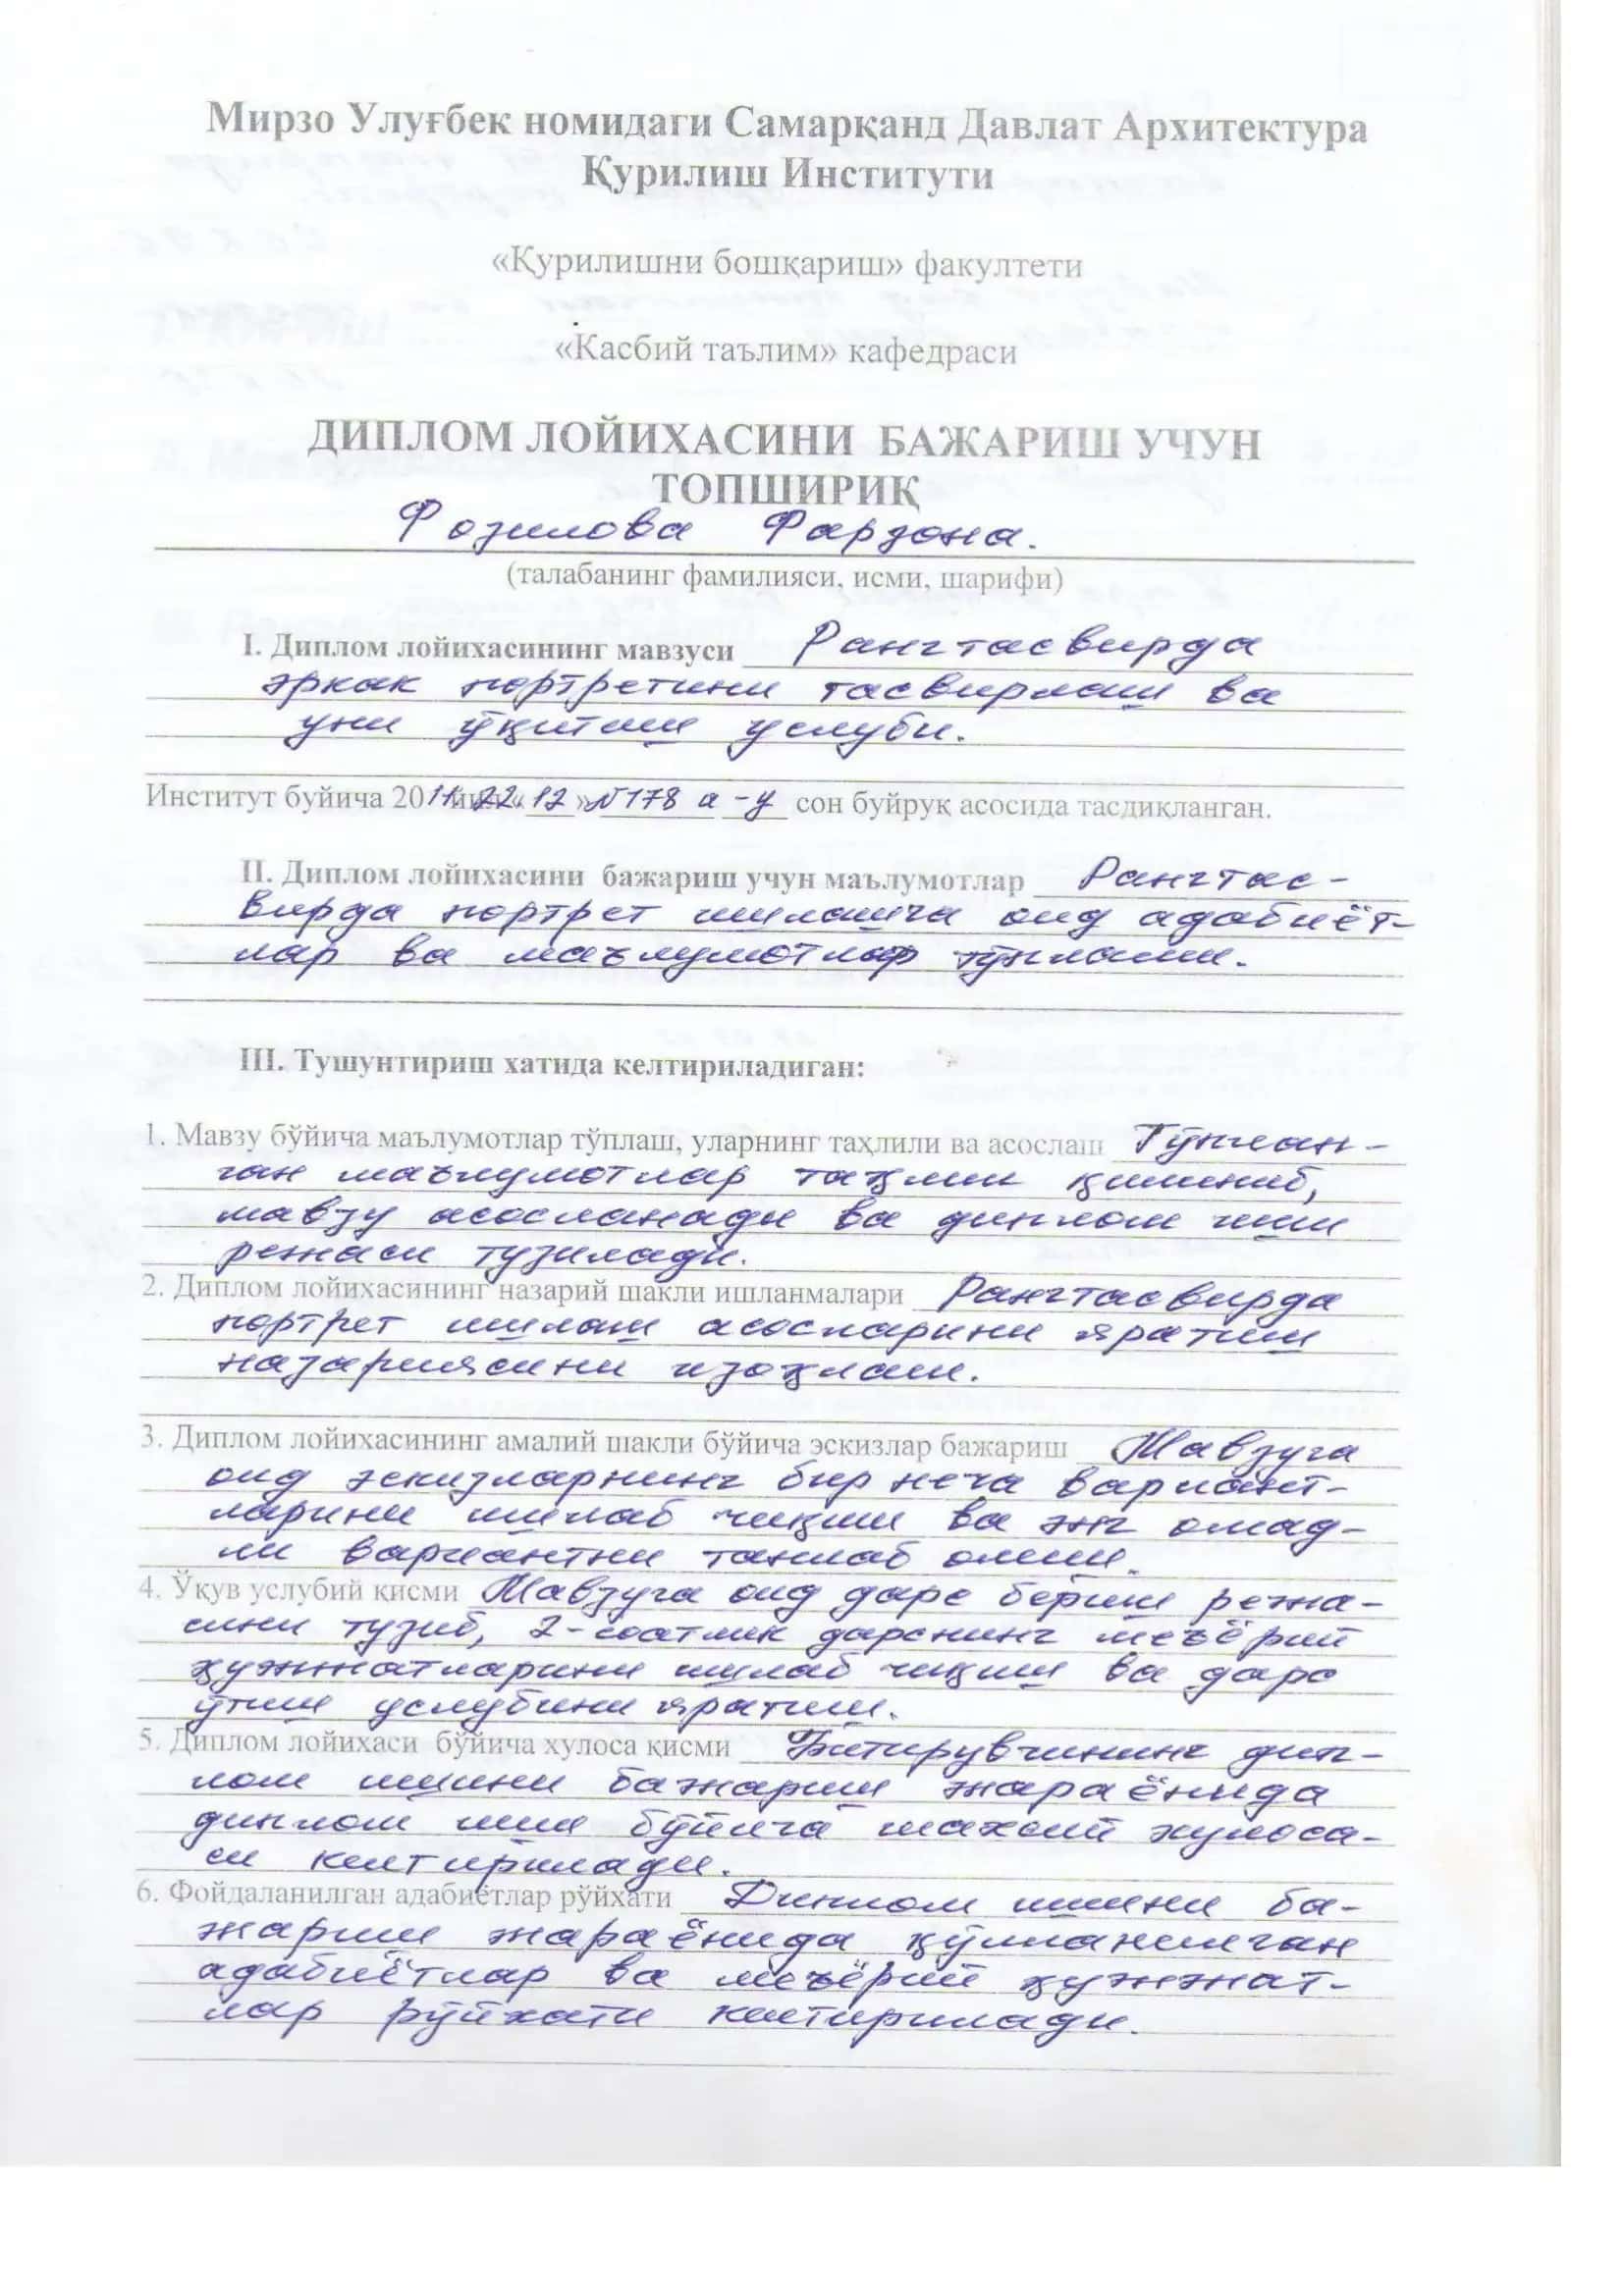 Мирзо Улуғбек номидаги Самарқанд Давлат Архитектура
Қурилиш Институти
«Қурилишни бошқариш» факултети
«Касбий таълим» кафедраси
ДИПЛОМ ЛОЙИХАСИНИ БАЖАРИШ УЧУН
ТОПШИРИҚ
Фозилова Фарзона.
(талабанинг фамилияси, исми, шарифи)
I. Диплом лойихасининг мавзуси Рангтасвирда
эркак портретини тасвирлаш ва
уни ўқитиш услуби.
Институт буйича 2011 22 12 №178 а -у сон буйруқ асосида тасдиқланган.
II. Диплом лойихасини бажариш учун маълумотлар Рангтас-
вирда портрет ишлашга оид адабиёт-
лар ва маълумотлар тўплаш.
III. Тушунтириш хатида келтириладиган:
1. Мавзу бўйича маълумотлар тўплаш, уларнинг таҳлили ва асослаш Тўплан-
ган маълумотлар таҳлил қилиниб,
мавзу асосланади ва диплом иши
режаси тузилади.
2. Диплом лойихасининг назарий шакли ишланмалари Рангтасвирда
портрет ишлаш асосларини яратиш
назариясини изоҳлаш.
3. Диплом лойихасининг амалий шакли бўйича эскизлар бажариш Мавзуга
оид эскизларнинг бир неча вариант-
ларини ишлаб чиқиш ва энг омад-
ли вариантни танлаб олиш.
4. Ўқув услубий қисми Мавзуга оид дарс бериш режа-
сини тузиб, 2-соатлик дарснинг меъёрий
ҳужжатларини ишлаб чиқиш ва дарс
ўтиш услубини яратиш.
5. Диплом лойихаси бўйича хулоса қисми Битирувчининг дип-
лом ишини бажариш жараёнида
диплом иши бўйича шахсий хулоса-
си келтирилади.
6. Фойдаланилган адабиётлар рўйхати Диплом ишини ба-
жариш жараёнида қўлланилган
адабиётлар ва меъёрий ҳужжат-
лар рўйхати келтирилади.